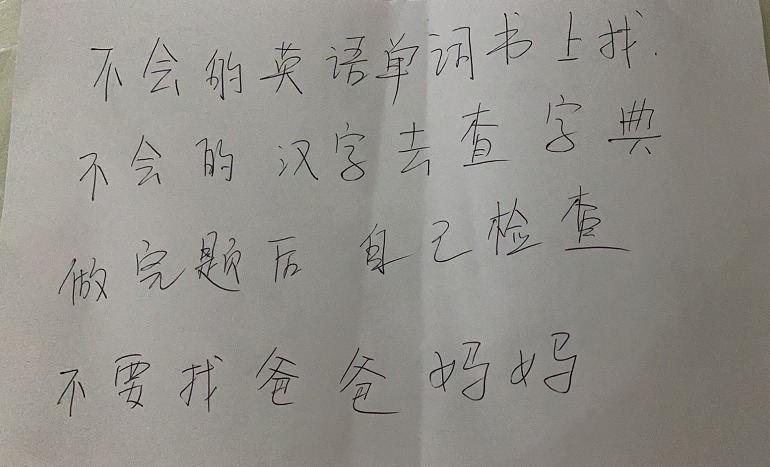 不会的英语单词书上找.
不会的汉字去查字典
做完题后自己检查
不要找爸爸妈妈